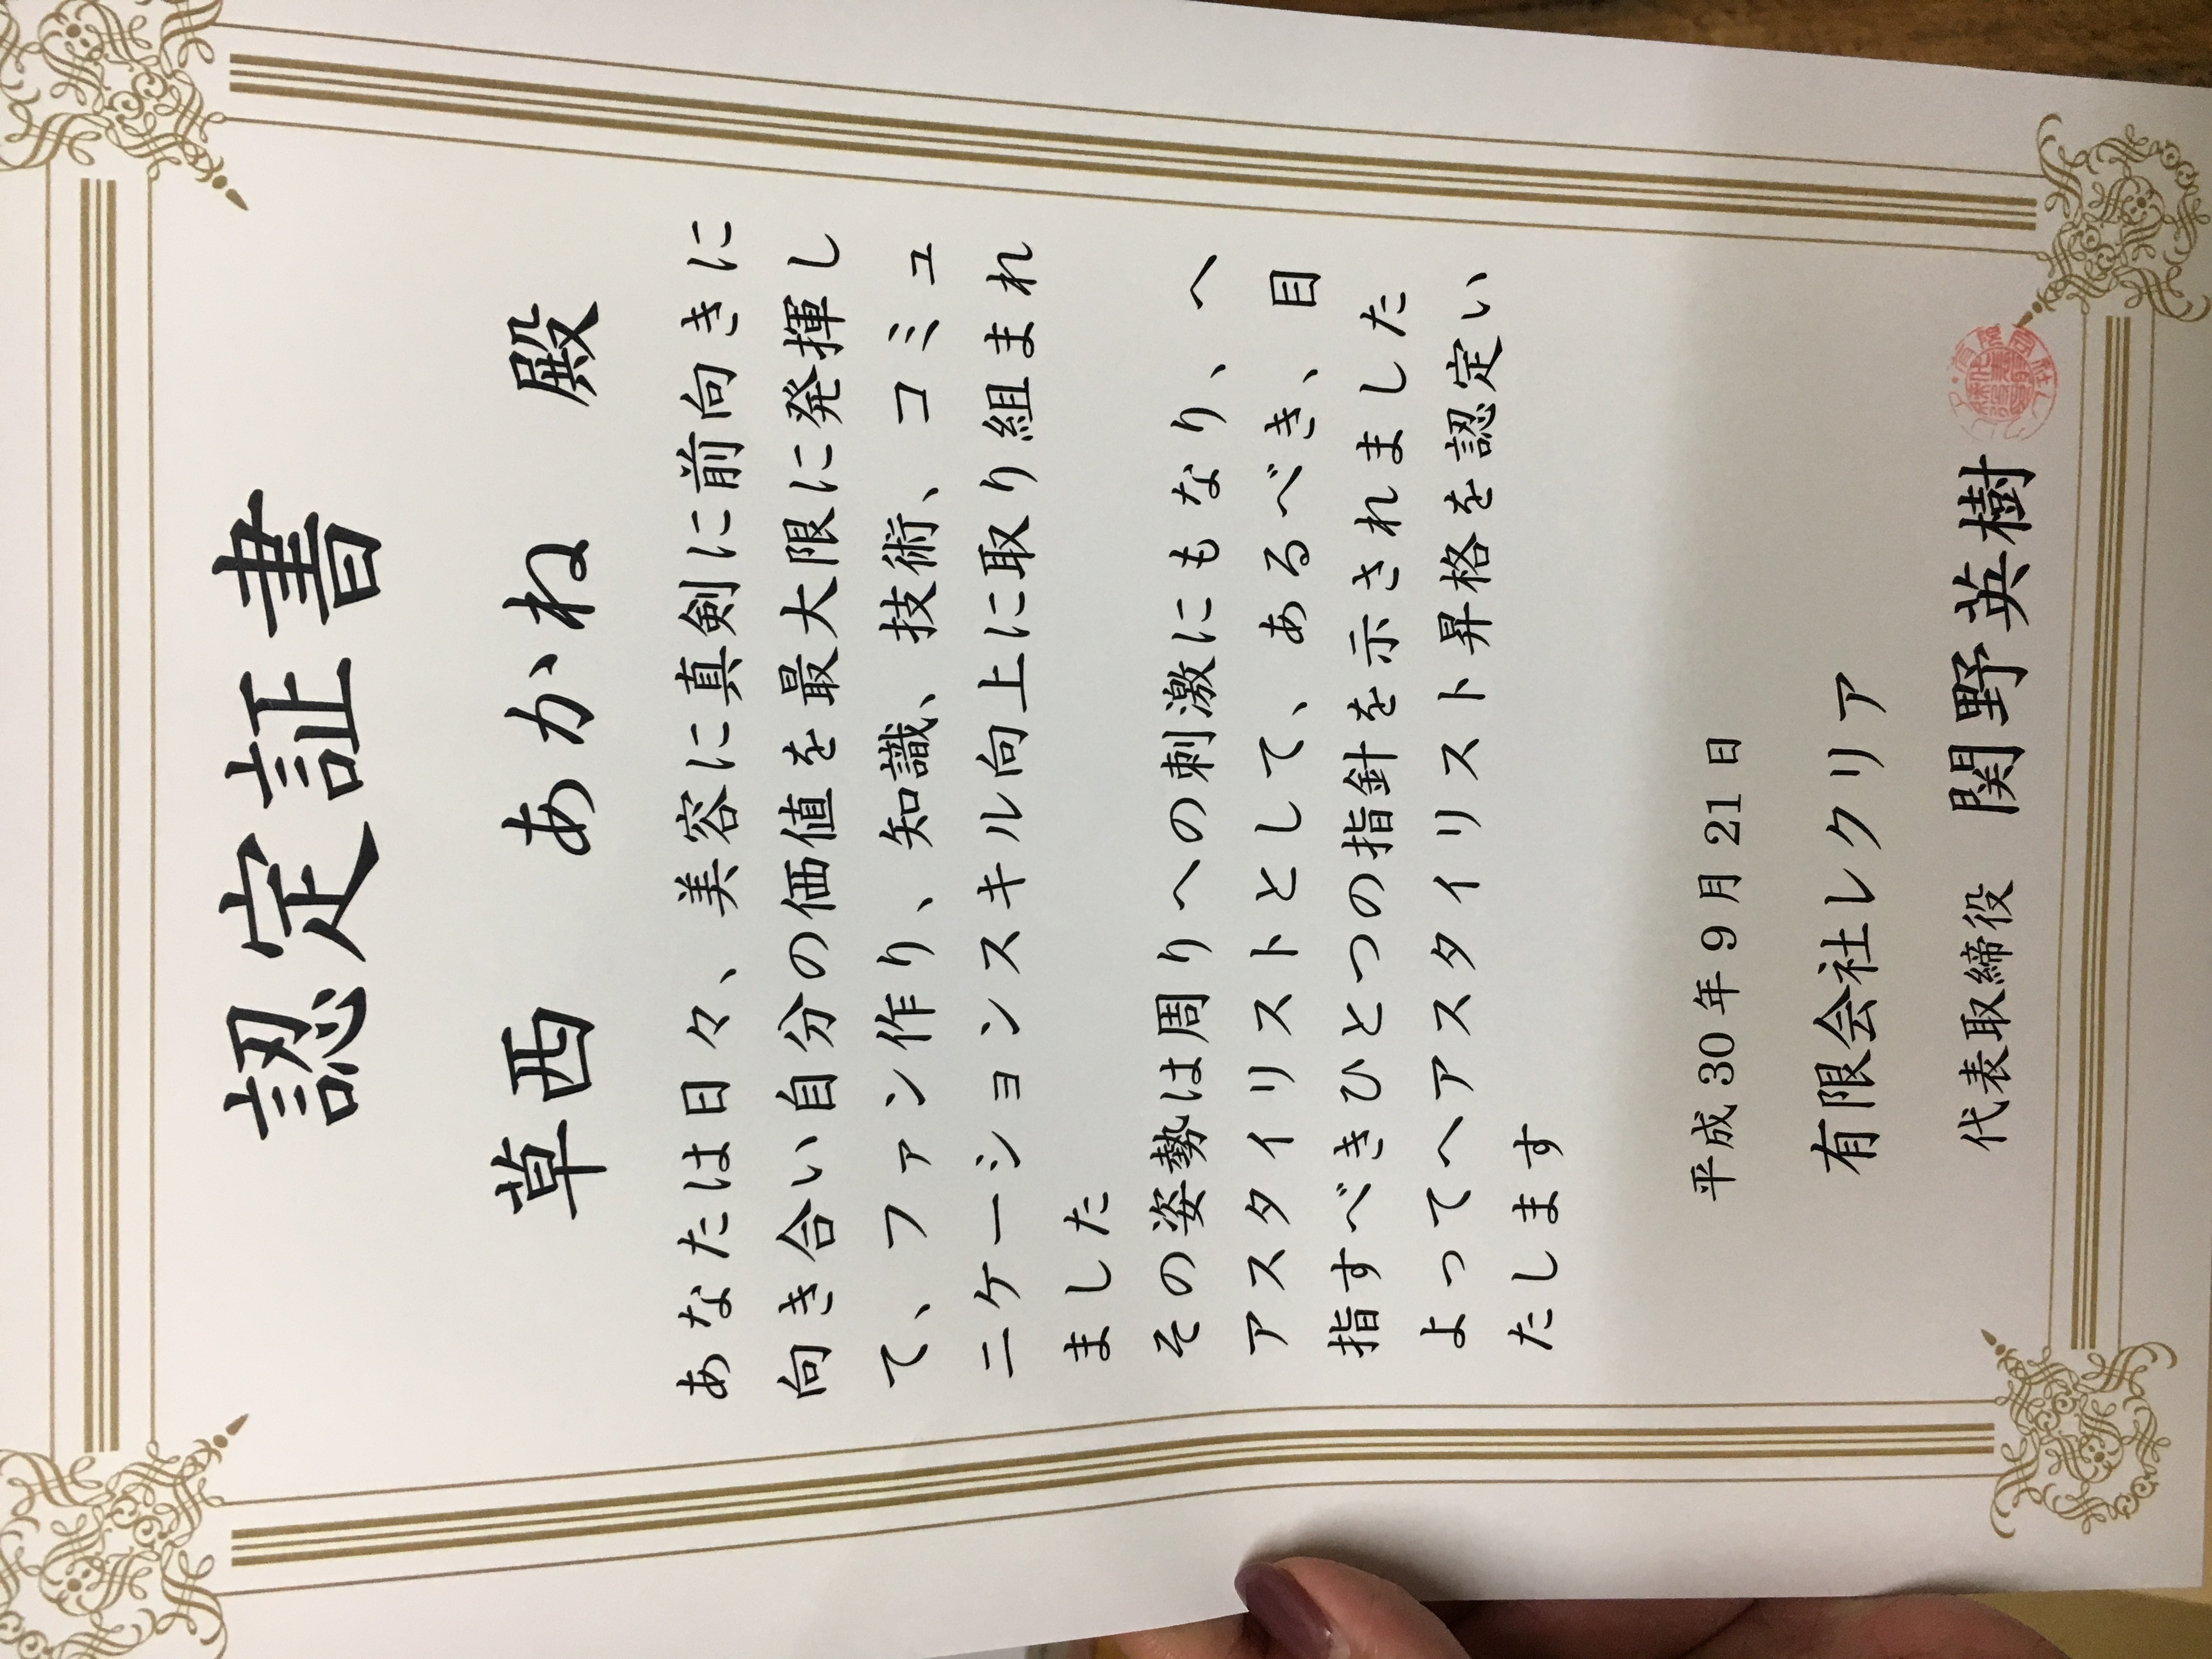 認定証書
草西 あかね 殿
あなたは日々、美容に真剣に前向きに
向き合い自分の価値を最大限に発揮し
て、ファン作り、知識、技術、コミュ
ニケーションスキル向上に取り組まれ
ました
その姿勢は周りへの刺激にもなり、ヘ
アスタイリストとして、あるべき、目
指すべきひとつの指針を示されました
よってヘアスタイリスト昇格を認定い
たします
平成30年9月21日
有限会社レクリア
代表取締役 関野英樹